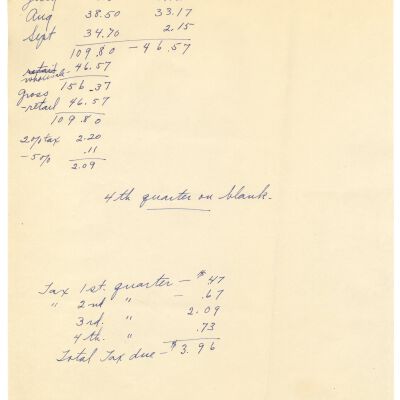 Aug 38.50 33.17
Sept 34.70 2.15
109.80 - 46.57
retail
wholesale 46.57
gross 156.37
-retail 46.57
109.80
20% tax 2.20
- 5% .11
2.09
4th quarter on blank.
Tax 1st. quarter - $.47
" 2nd " - .67
3rd. " 2.09
4th. " .73
Total Tax due - $3.96